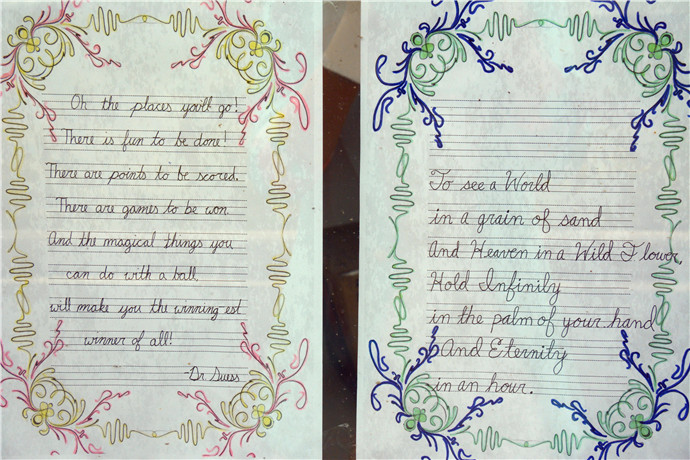 Oh the places you'll go!
There is fun to be done!
There are points to be scored.
There are games to be won.
And the magical things you
can do with a ball
will make you the winning est
winner of all!
-Dr. Suess
To see a World
in a grain of sand
And Heaven in a Wild Flower,
Hold Infinity
in the palm of your hand
And Eternity
in an hour.